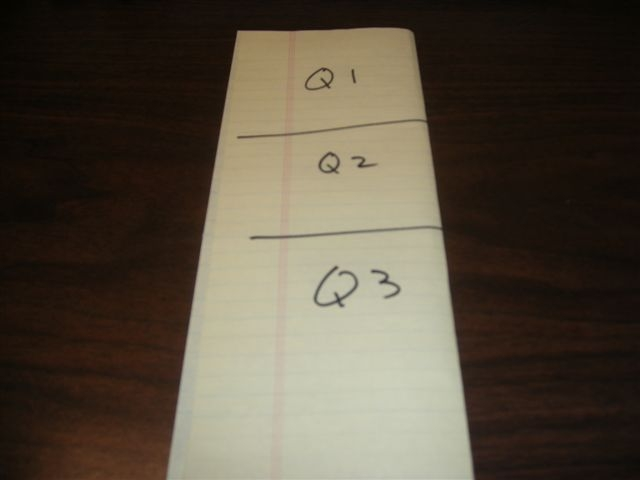 Q1
Q2
Q3